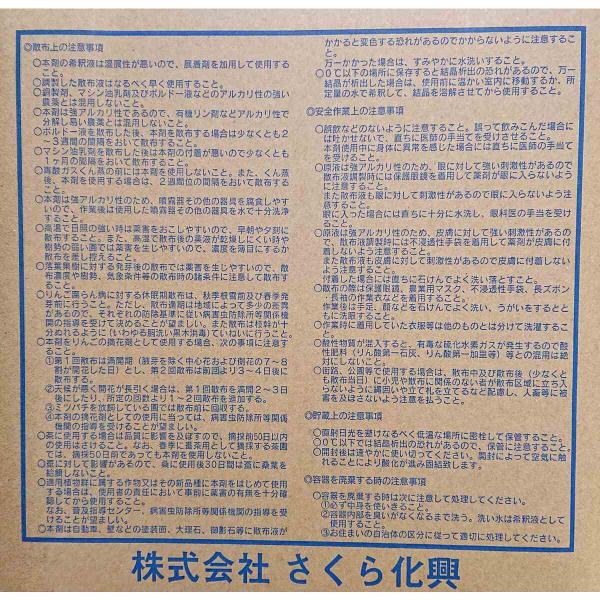 ◎散布上の注意事項
○本剤の希釈液は湿展性が悪いので、展着剤を加用して使用する
こと。
○調製した散布液はなるべく早く使用すること。
○銅製剤、マシン油乳剤及びボルドー液などのアルカリ性の強い
農薬とは混用しないこと。
○本剤は強アルカリ性であるので、有機リン剤などアルカリ性で
分解し易い薬剤とは混用しないこと。
○ボルドー液を散布した後、本剤を散布する場合は少なくとも2
～3週間の間隔をおいて散布すること。
○マシン油乳剤を散布した後は本剤の付着が悪いので少なくとも
1ヶ月の間隔をおいて散布すること。
○青酸ガスくん蒸の前には本剤を使用しないこと。また、くん蒸
後、本剤を使用する場合は、2週間位の間隔をおいて散布する
こと。
○本剤は強アルカリ性のため、噴霧器その他の器具を腐食しやす
いので、作業後は使用した噴霧器その他の器具を水で十分洗浄
すること。
○高温で日照の強い時は薬害をおこしやすいので、早朝や夕刻に
散布すること。また、高湿で散布後の薬液が乾燥しにくい時や
樹勢の弱い園では薬害を生じやすいので、濃度を薄目にするか
散布を差し控えること。
○落葉果樹に対する発芽後の散布では薬害を生じやすいので、散布
濃度や樹勢、気象条件等の散布時の諸条件に注意して散布す
ること。
○りんご腐らん病に対する休眠期散布は、秋季根雪前及び春季発
芽前に行うこと。ただし、散布適期は地域によって多少の差異
があるので、それぞれの防除基準に従い病害虫防除所等関係機
関の指導を受けて決めることが望ましい。また散布は枝幹が十
分ぬれるように（いわゆる胴洗い黒木消毒）ていねいに行うこと。
○本剤をりんごの摘花剤として使用する場合、次の事項に注意す
ること。
①第1回散布は満開期（腋芽を除く中心花および側花の7～8
割が開花した日）とし、第2回散布は前回より3～4日後に
散布する。
②天候が悪く開花が長引く場合は、第1回散布を満開2～3日
後にしたり、所定の回数より1～2回散布を追加する。
③ミツバチを放飼している園では散布前に回収する。
④本剤の摘花剤としての使用に当っては、病害虫防除所等関係
機関の指導を受けることが望ましい。
○茶に使用する場合は品質に影響を及ぼすので、摘採前50日以内
の使用はさけること。なお、春季に蚕茶用として摘採する茶園
では、摘採50日前であっても本剤を使用しないこと。
○蚕に対して影響があるので、桑に使用後30日間は蚕に桑葉を
給餌しないこと。
○適用植物群に属する作物又はその新品種に本剤をはじめて使用
する場合は、使用者の責任において事前に薬害の有無を十分確
認してから使用すること。
なお、普及指導センター、病害虫防除所等関係機関の指導を受
けることが望ましい。
○本剤は自動車、壁などの塗装面、大理石、御影石等に散布液が
かかると変色する恐れがあるのでかからないように注意するこ
と。
万一かかった場合は、すみやかに水洗いすること。
○0℃以下の場所に保存すると結晶析出の恐れがあるので、万一
結晶が析出した場合は、使用前に温かい室内に移動するか、所
定量の水で希釈して、結晶を溶解させてから使用すること。
◎安全作業上の注意事項
○誤飲などのないように注意すること。誤って飲みこんだ場合に
は吐かせないで、直ちに医師の手当てを受けさせること。
本剤使用中に身体に異常を感じた場合には直ちに医師の手当て
を受けること。
○原液は強アルカリ性のため、眼に対して強い刺激性があるので
散布液調製時には保護眼鏡を着用して薬剤が眼に入らないよう
に注意すること。
また散布液も眼に対して刺激性があるので眼に入らないよう注
意すること。
眼に入った場合には直ちに十分に水洗し、眼科医の手当を受け
ること。
○原液は強アルカリ性のため、皮膚に対して強い刺激性がある
ので、散布液調製時には不浸透性手袋を着用して薬剤が皮膚に付
着しないよう注意すること。
また散布液も皮膚に対して刺激性があるので皮膚に付着しない
よう注意すること。
付着した場合には直ちに石けんでよく洗い落とすこと。
○散布の際は保護眼鏡、農薬用マスク、不浸透性手袋、長ズボン
・長袖の作業衣などを着用すること。
作業後は手足、顔などを石けんでよく洗い、うがいをするとと
もに洗眼すること。
○作業時に着用していた衣服等は他のものとは分けて洗濯するこ
と。
○酸性物質が混入すると、有毒な硫化水素ガスが発生するので酸
性肥料（りん酸第一石灰、りん酸第一加里等）等との混用は絶対
にしないこと。
○街路、公園等で使用する場合は、散布中及び散布後（少なくと
も散布当日）に小児や散布に関係のない者が散布区域に立ち入
らないように縄囲いや立て札を立てるなど配慮し、人畜等に被
害を及ぼさないよう注意を払うこと。
◎貯蔵上の注意事項
○直射日光を避けなるべく低温な場所に密栓して保管すること。
○0℃以下では結晶析出の恐れがあるので、保管に注意すること。
○開封後は速やかに使い切ってください。開封によって空気に触
れることにより酸化が進み固結致します。
◎容器を廃棄する時の注意事項
○容器を廃棄する時は次に注意して処理してください。
①必ず中身を使いきること。
②容器内部を臭いがなくなるまで洗う。洗い水は希釈液として
使用すること。
③お住まいの自治体の区分に従って適切に処理してください。
株式会社 さくら化興